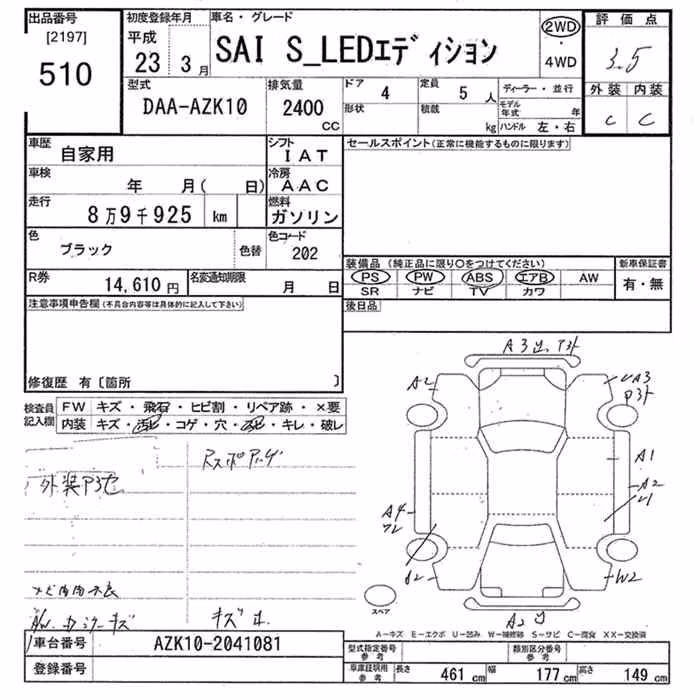 出品番号 初度登録年月 車名・グレード 評価点
[2197] 平成 SAI S_LEDエディション 2WD
510 23年 3月 ・ 3.5
4WD
型式 排気量 ドア 4 定員 5人 ディーラー・並行 外装 内装
DAA-AZK10 2400 CC 形状 積載 kg モデル年式 年 C C
ハンドル 左・右
車歴 自家用 シフト IAT セールスポイント(正常に機能するものに限ります)
車検 年 月( 日) 冷房 AAC
走行 8万9千925 km 燃料 ガソリン
色 ブラック 色替 色コード 202
装備品 (純正品に限り○をつけてください) 新車保証書
R券 14,610円 名変通知期限 月 日 PS PW ABS エアB AW 有・無
SR ナビ TV カワ
注意事項申告欄(不具合内容等は具体的に記入して下さい) 後日品
修復歴 有〔箇所 〕
検査員記入欄 FW キズ・飛石・ヒビ割・リペア跡・×要
内装 キズ・汚レ・コゲ・穴・スレ・キレ・破レ
A2
A3
P3
A1
A2
U1
A4
W2
A2
スペア
A-キズ E-エクボ U-凹み W-補修跡 S-サビ C-腐食 XX-交換済
車台番号 AZK10-2041081 型式指定番号 参考 類別区分番号 参考
登録番号 車庫証明用 参考 長さ 461cm 幅 177cm 高さ 149cm